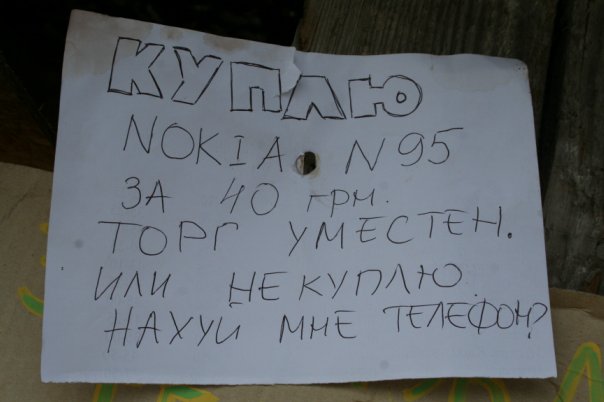 КУПЛЮ
NOKIA N95
ЗА 40 ГРМ.
ТОРГ УМЕСТЕН.
ИЛИ НЕ КУПЛЮ.
НАХУЙ МНЕ ТЕЛЕФОН?